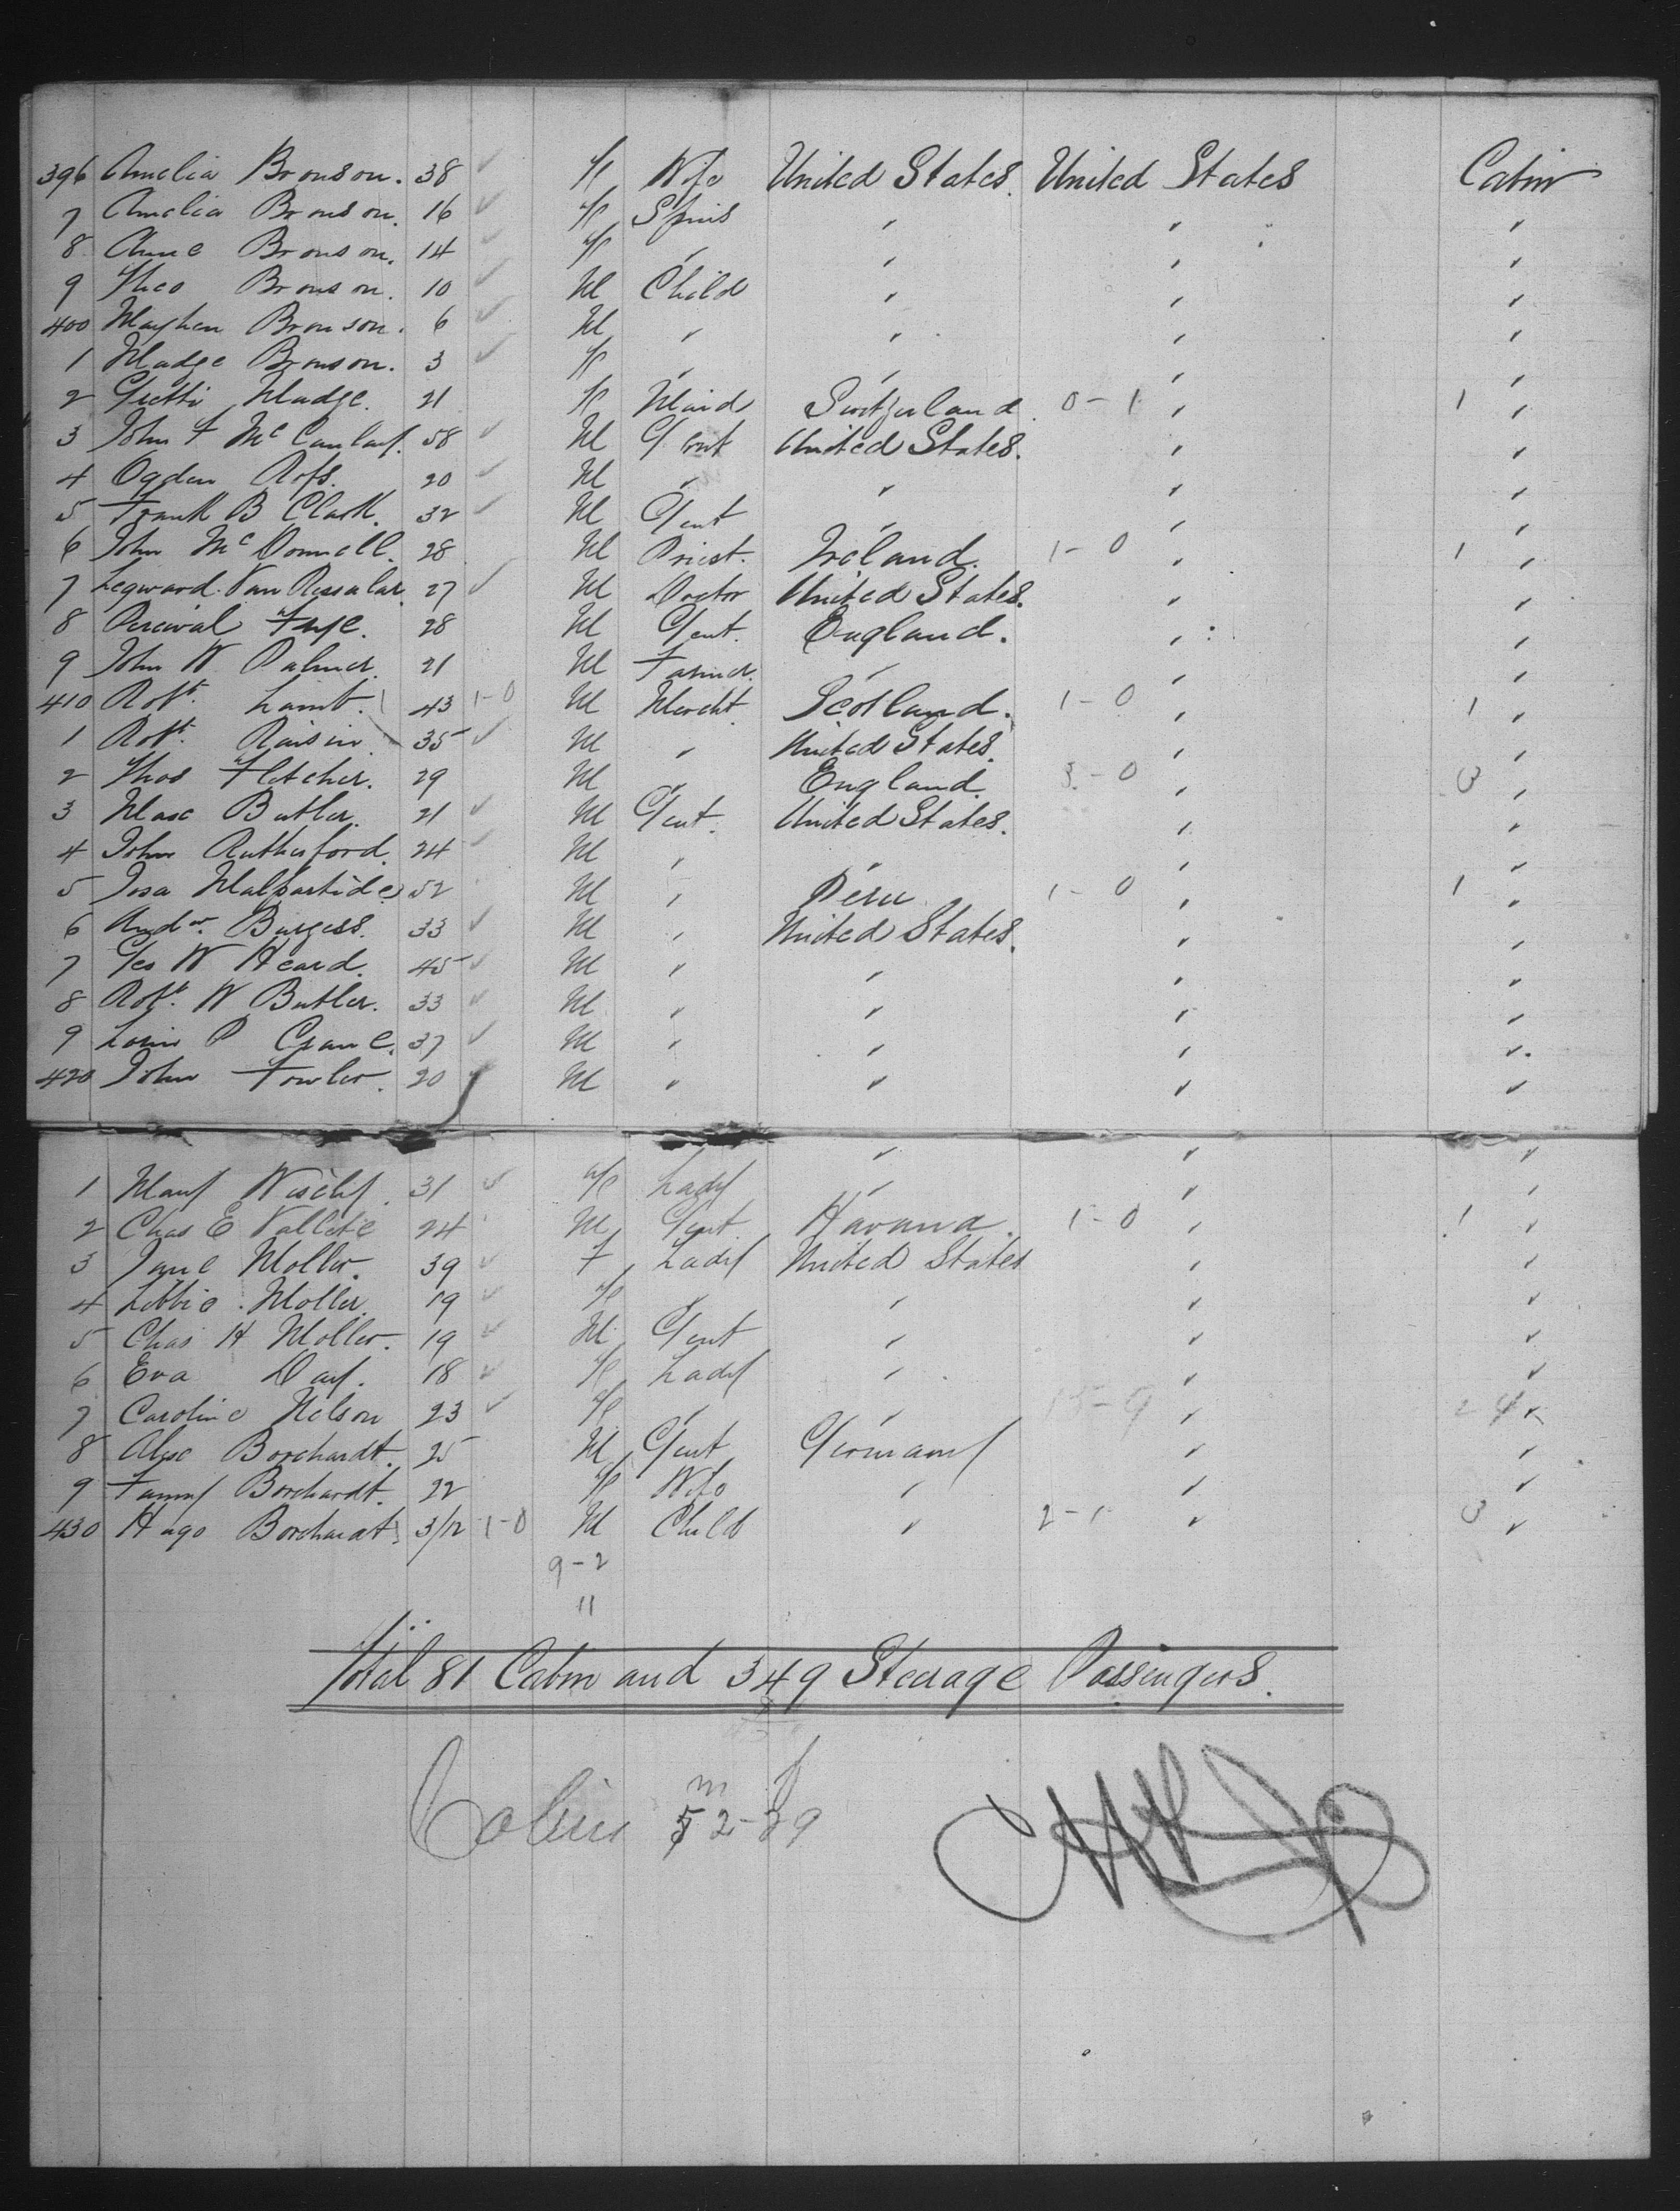 396 Amelia Bronson. 38 ✓ F Wife United States. United States Cabin
7 Amelia Bronson. 16 ✓ F Spins " " "
8 Anne Bronson. 14 ✓ F " " " "
9 Theo Bronson. 10 ✓ M Child " " "
400 Bronson. 6 ✓ M " " " "
1 Madge Bronson. 3 ✓ F " " " "
2 Madge. 21 F Maid Switzerland. 0-1 " 1 "
3 John F Mc 58 ✓ M Gent United States. " "
4 Ogden Rofs. 20 ✓ M " " " "
5 Frank B Clark. 32 ✓ M Gent " " "
6 John Mc Donnell. 28 M Priest. Ireland. 1-0 " 1 "
7 Legward Van Rissalar. 27 ✓ M Doctor United States. " "
8 Percival 28 M Gent. England. " "
9 John W Palmer. 21 M Farmer. " " "
410 Robt. Lamb. 43 1-0 M Mercht. Scotland. 1-0 " 1 "
1 Robt. Raisin 35 ✓ M " United States. " "
2 Thos Fletcher. 29 M " England. 3-0 " 3 "
3 Butler. 21 ✓ M Gent. United States. " "
4 John Rutherford. 24 ✓ M " " " "
5 Josa Malpartide 52 M " Peru 1-0 " 1 "
6 Andw. Burgess. 33 ✓ M " United States. " "
7 Geo W Heard. 45 ✓ M " " " "
8 Robt. W Butler. 33 ✓ M " " " "
9 Lorin P Crane. 37 ✓ M " " " "
420 John Fowler. 20 ✓ M " " " "
" " "
1 Mary 31 ✓ F Lady " " "
2 Chas E Vallete 24 M Gent Havana. 1-0 " 1 "
3 Jane Moller. 39 ✓ F Lady United States " "
4 Libbie Moller. 19 ✓ F " " " "
5 Chas H Moller. 19 ✓ M Gent " " "
6 Eva Day. 18 ✓ F Lady " " "
7 Caroline Nelson 23 ✓ F " " 15-9 " 24 "
8 Alex Borchardt. 25 M Gent Germany " "
9 Fanny Borchardt. 22 F Wife " " "
430 Hugo Borchardt 3/12 1-0 M Child " 2-1 " 3 "
9-2
11
Total 81 Cabin and 349 Steerage Passengers.
m f
Cabin 52-29